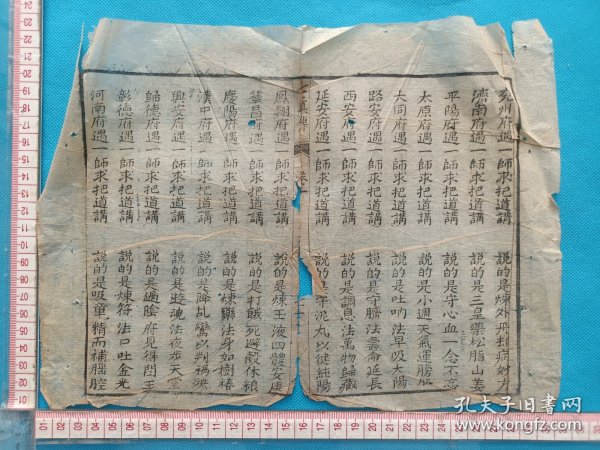 兖州府遇一師求把道講 說的是煉外丹却病妙方
濟南府遇一師求把道講 說的是三皇藥松脂山姜
平陽府遇一師求把道講 說的是守心血一念不忘
太原府遇一師求把道講 說的是小週天氣運膀胱
大同府遇一師求把道講 說的是吐吶法早吸太陽
路安府遇一師求把道講 說的是守臍法壽命延長
西安府遇一師求把道講 說的是調息法萬物歸藏
延安府遇一師求把道講 說的是守泥丸以健純陽
真傳 卷
鳳翔府遇一師求把道講 說的是煉玉液四體安康
鞏昌府遇一師求把道講 說的是打餓死避穀休粮
慶陽府遇一師求把道講 說的是煉藥法身如樹樁
漢中府遇一師求把道講 說的是降乩鸞以判禍殃
興安府遇一師求把道講 說的是遊魂法夜步天堂
歸德府遇一師求把道講 說的是過陰府見得閆王
彰德府遇一師求把道講 說的是煉符法口吐金光
河南府遇一師求把道講 說的是吸童精而補腦腔
孔夫子旧书网
www.kongfz.com